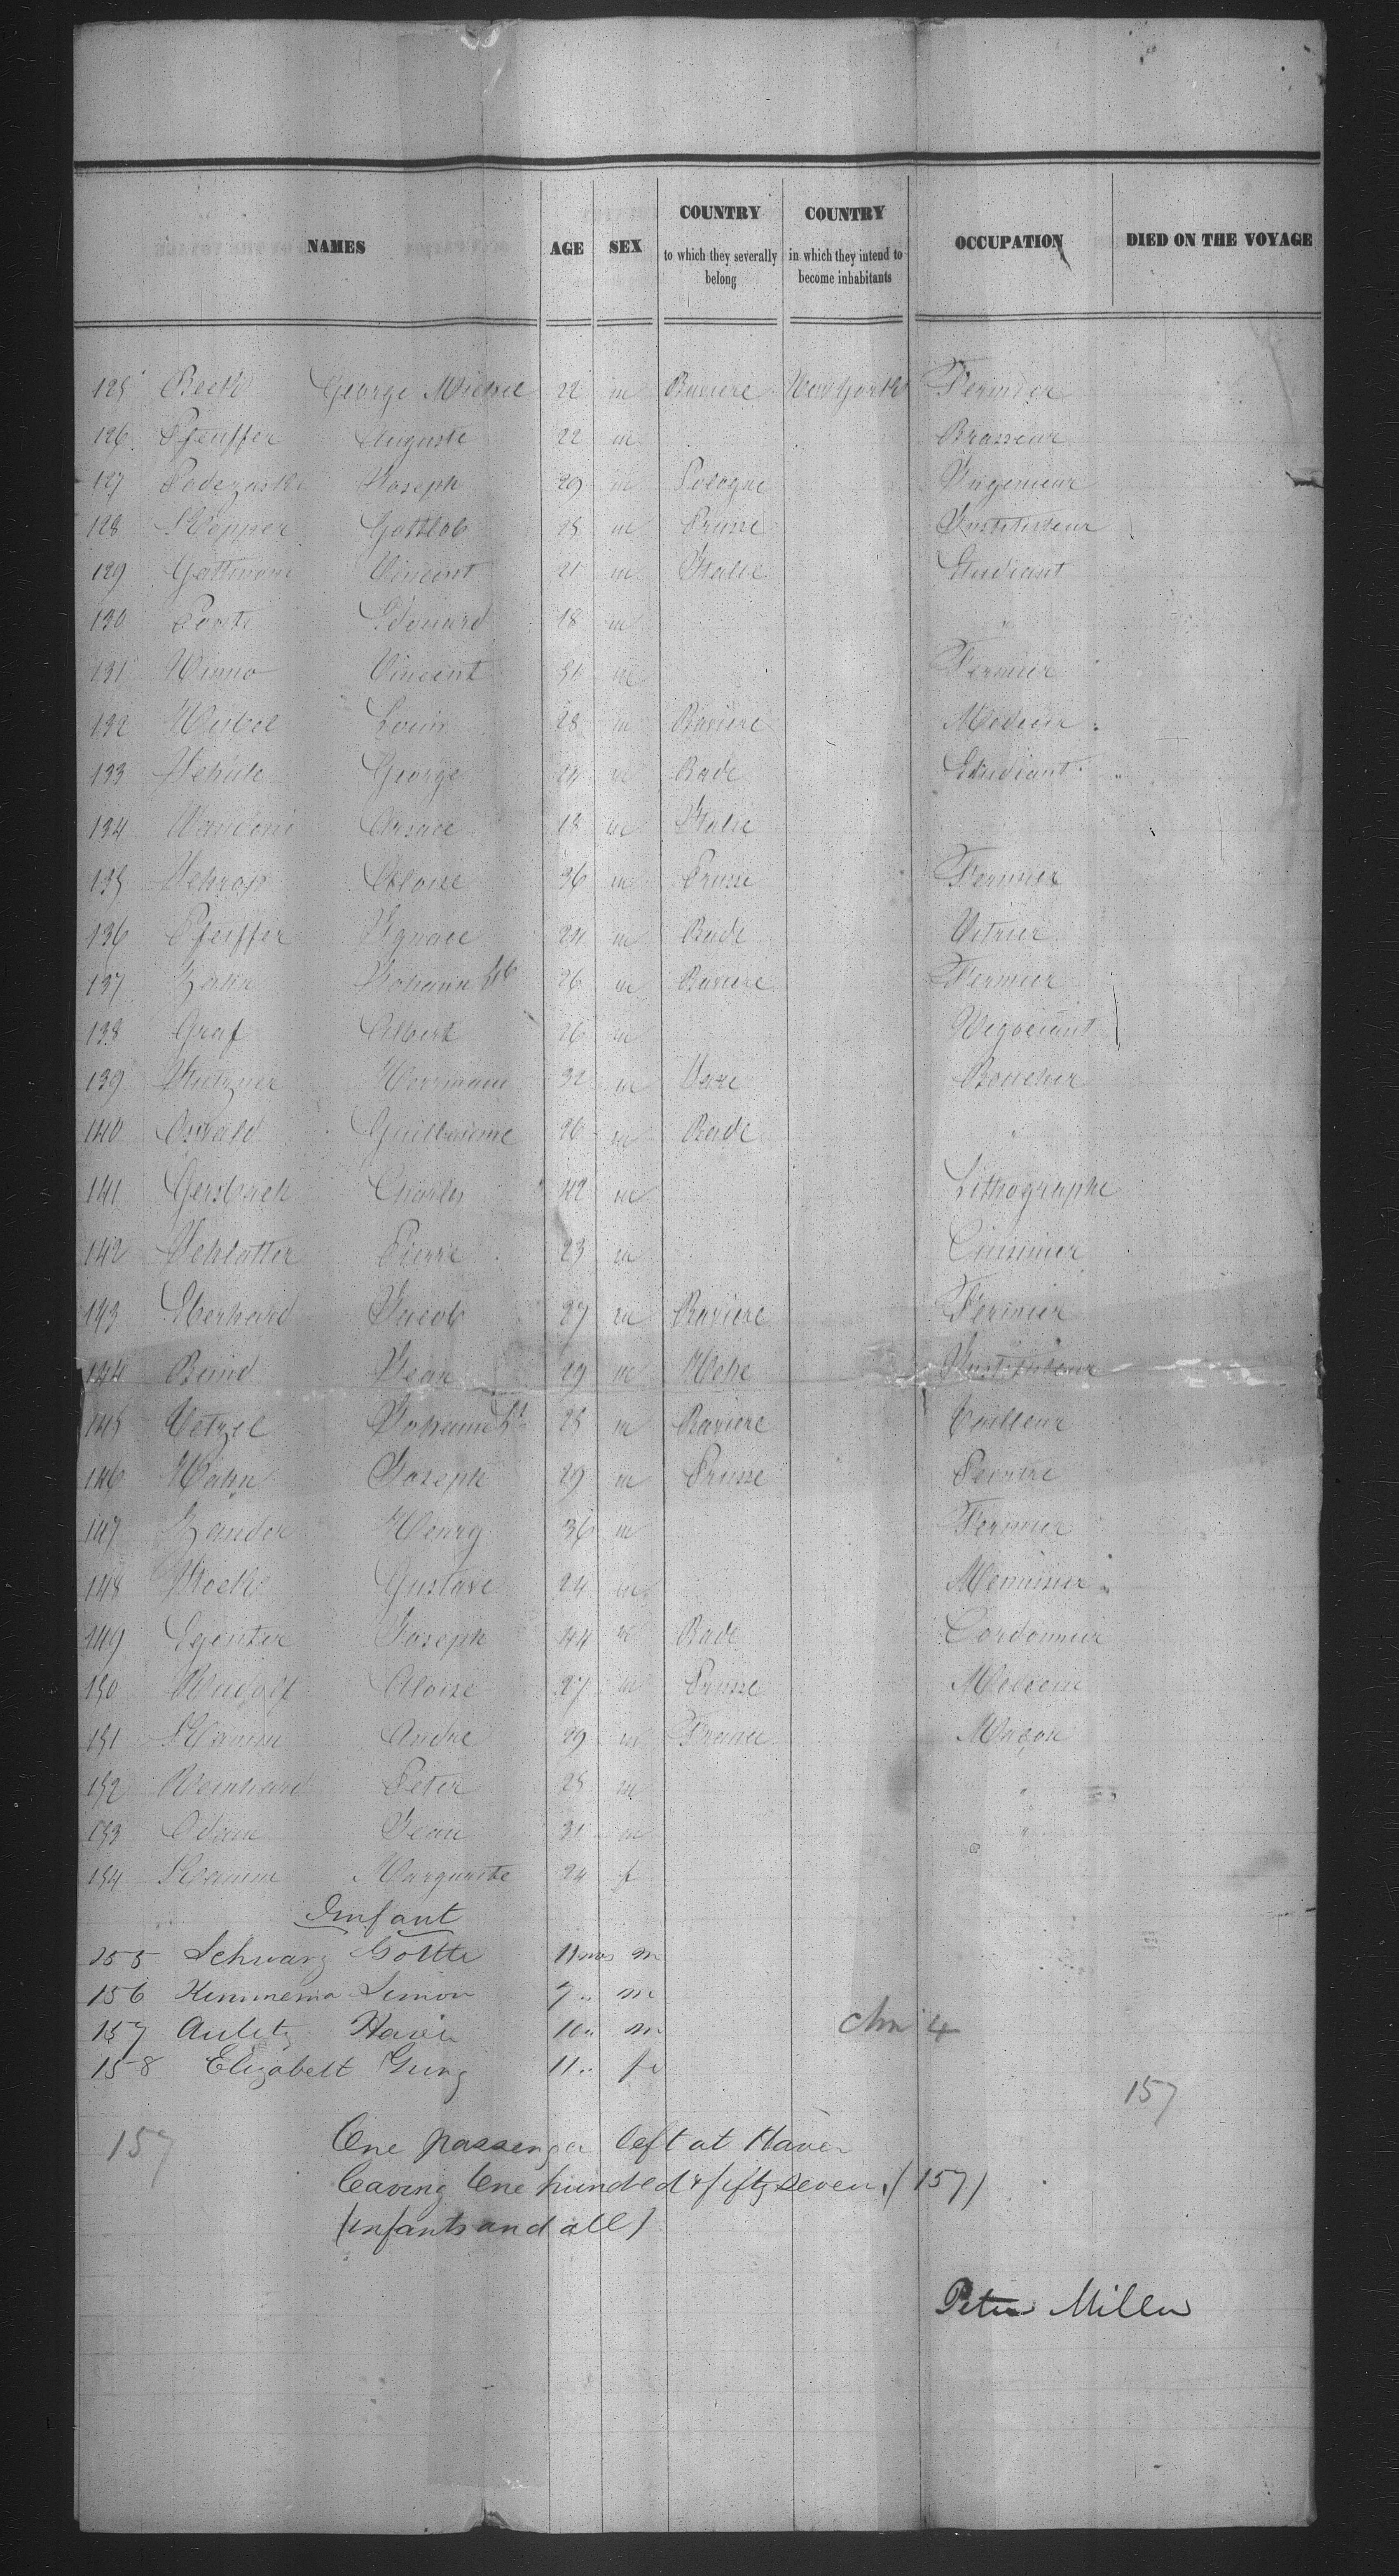 NAMES AGE SEX COUNTRY to which they severally belong COUNTRY in which they intend to become inhabitants OCCUPATION DIED ON THE VOYAGE
125 Beck George Michel 22 m Baviere New York Fermier
126 Pfeuffer Auguste 22 m Brasseur
127 Joseph 29 m Pologne Ingenieur
128 Klopper Gottlob 25 m Prusse Instituteur
129 Vincent 21 m Italie Etudiant
130 Ponti Edouard 18 m "
131 Vincent 31 m Fermier
132 Louis 28 m Baviere Medecin
133 George m Bade Etudiant
134 18 m Italie
135 Aloise 36 m Prusse Fermier
136 Pfeiffer Ignace 24 m Bade Vitrier
137 Zahn Johann 26 m Baviere Fermier
138 Graf Albert 26 m Negociant
139 Hermann 32 m Saxe Boucher
140 Oswald Guillaume 26 m Bade "
141 Gersbach Charles 42 m Lithographe
142 Schlatter Pierre 23 m Cuisinier
143 Eberhard Jacob 27 m Baviere Fermier
144 Jean 29 m Instituteur
145 Vetzel Johann 25 m Baviere Tailleur
146 Hahn Joseph 29 m Prusse Peintre
147 Zander Henry 36 m Fermier
148 Gustave 24 m Menuisier
149 Egenter Joseph 44 m Bade Cordonnier
150 Rudolf Aloise 27 m Prusse Medecin
151 Klamm Andre 29 m France Maçon
152 Reinhard Peter 25 m "
153 Adam Jean 31 m "
154 Klamm Marguerite 24 f
Infant
155 Schwarz Gottle 11 mos m
156 Simon 7 " m
157 10 " m chn 4
158 Elizabett Gung 11 " fe
157
157 One passenger left at Haver
leaving One hundred & fifty seven, (157)
(infants and all)
Peter Miller